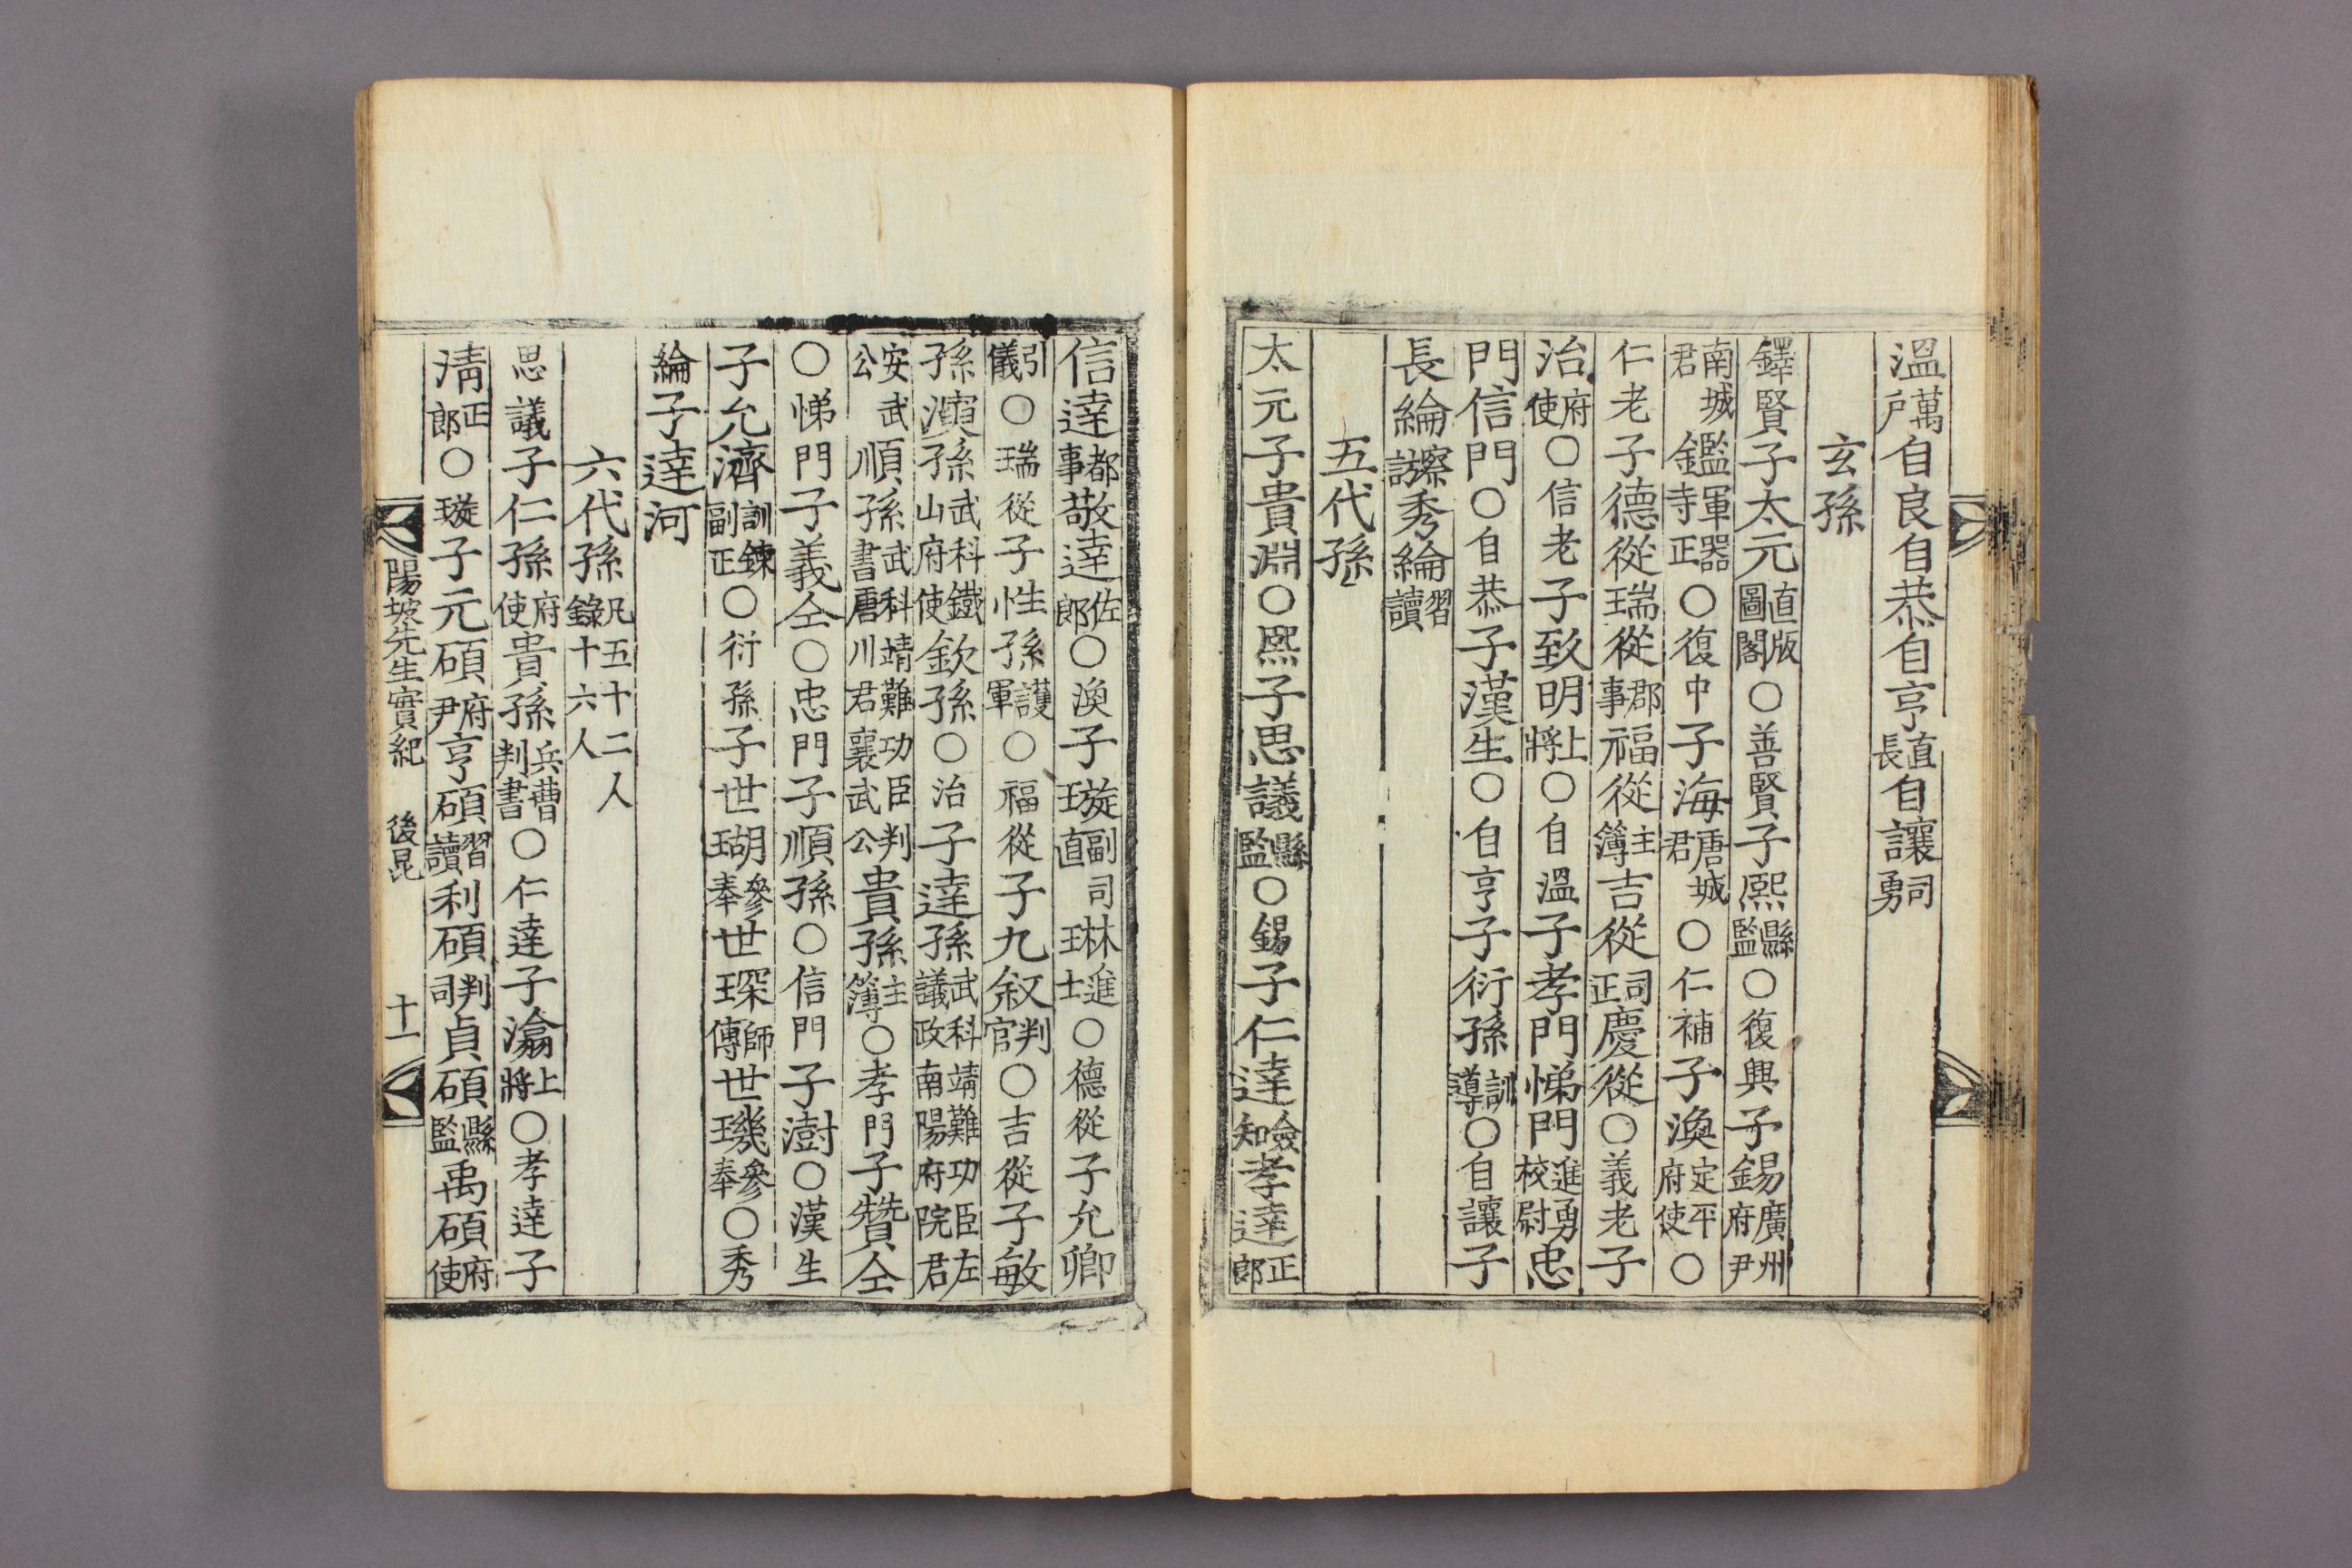 溫萬戶自良自恭自亨直長自讓司勇
玄孫
鐸賢子太元直版圖閣○善賢子熙縣監○復興子錫廣州府尹
南城君鑑軍器寺正○復中子海唐城君○仁補子渙定平府使○
仁老子德從瑞從郡事福從主簿吉從司正慶從○義老子
治府使○信老子致明上將○自溫子孝門悌門進勇校尉忠
門信門○自恭子漢生○自亨子衍孫訓導○自讓子
長綸察訪秀綸習讀
五代孫
太元子貴淵○熙子思議縣監○錫子仁達僉知孝達正郎
信達都事敬達佐郎○渙子璇副司直琳進士○德從子允卿
引儀○瑞從子性孫護軍○福從子九叙判官○吉從子敏
孫濱孫武科鐵山府使欽孫○治子達孫武科靖難功臣左議政南陽府院君
安武公順孫武科靖難功臣判書唐川君襄武公貴孫主簿○孝門子贊仝
○悌門子義仝○忠門子順孫○信門子澍○漢生
子允濟訓鍊副正○衍孫子世瑚參奉世琛師傅世璣參奉○秀
綸子達河
六代孫凡五十二人錄十六人
思議子仁孫府使貴孫兵曹判書○仁達子瀹上將○孝達子
淸正郎○璇子元碩府尹亨碩習讀利碩判司貞碩縣監禹碩府使
陽坡先生實紀 後昆 十一